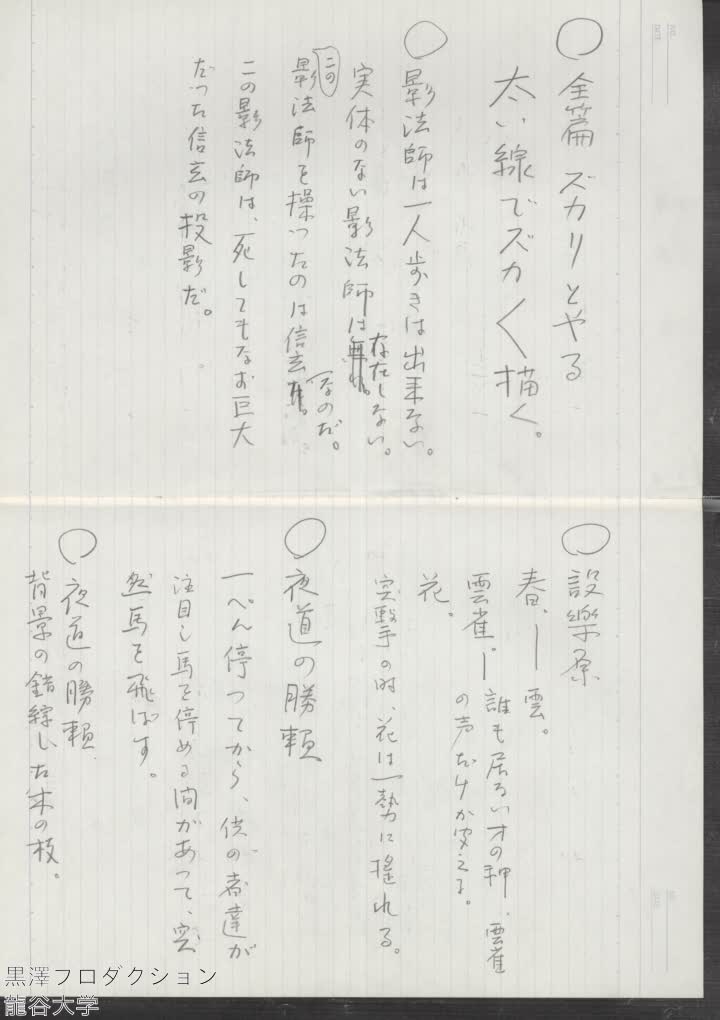 ○全篇 ズカリとやる
太い線でズカく描く。
○影法師は一人歩きは出来ない。
実体のない影法師は存在しない。
この影法師を操つたのは信玄なのだ。
この影法師は、死してもなお巨大
だつた信玄の投影だ。
○設樂原
春。ー雲。
雲雀。ー誰も居ない 雲雀
の声だけが聞える。
花。
突撃の時、花は一勢に揺れる。
○夜道の勝頼
一ぺん停つてから、供の者達が
注目し馬を停める間があつて、突
然馬を飛ばす。
○夜道の勝頼
背景の錯綜した木の枝。
黒澤プロダクション
龍谷大学